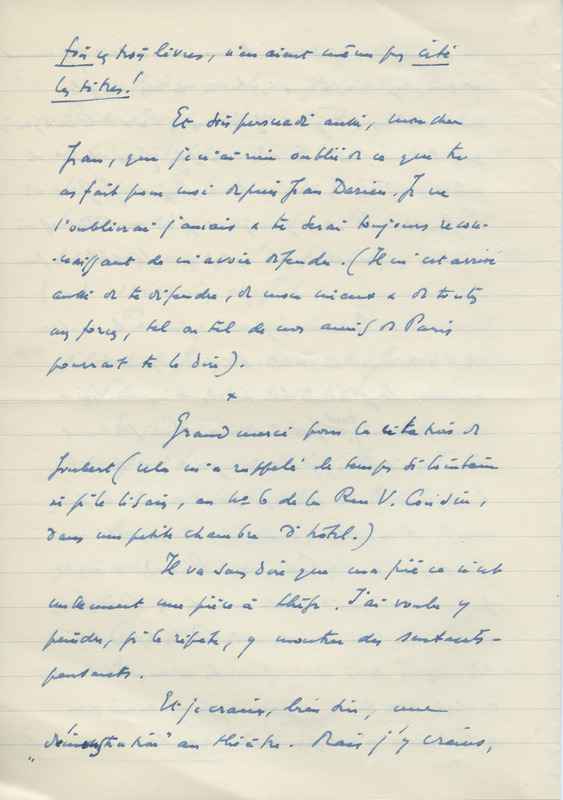 fois ces trois livres, n'en aient même pas cité
les titres!
Et sois persuadé aussi, mon cher
Jean, que je n'ai rien oublié de ce que tu
as fait pour moi depuis Jean Darien. Je ne
l'oublierai jamais & te serai toujours recon-
-naissant de m'avoir défendu. (Il m'est arrivé
aussi de te défendre, de mon mieux & de toutes
mes forces, tel ou tel de nos amis de Paris
pourrait te le dire).
x
Grand merci pour la citation de
Joubert (cela m'a rappelé le temps si lointain
où je le lisais, au no 6 de la Rue V. Cousin,
dans une petite chambre d'hôtel.)
Il va sans dire que ma pièce n'est
nullement une pièce à thèse. J'ai voulu y
peindre, je le répète, y montrer des sentants-
pensants.
Et je crains, bien sûr, une
au théâtre. Mais j'y crains,